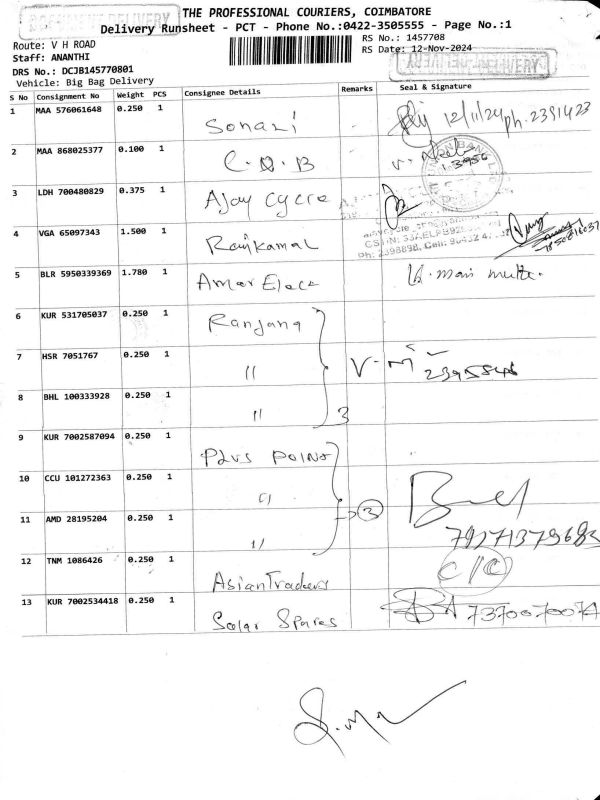 THE PROFESSIONAL COURIERS, COIMBATORE
Delivery Runsheet - PCT - Phone No.:0422-3505555 - Page No.:1
Route: V H ROAD
RS No.: 1457708
Staff: ANANTHI
RS Date: 12-Nov-2024
DRS No.: DCJB145770801
Vehicle: Big Bag Delivery
S No Consignment No Weight PCS Consignee Details Remarks Seal & Signature
1 MAA 576061648 0.250 1 Sonali 12/11/24 ph. 2391423
2 MAA 868025377 0.100 1 C.O.B
3 LDH 700480829 0.375 1 Ajay cycle
4 VGA 65097343 1.500 1 Rajkamal
5 BLR 5950339369 1.780 1 Amar Elect
6 KUR 531705037 0.250 1 Ranjana
7 HSR 7051767 0.250 1 " V. M 2395846
8 BHL 100333928 0.250 1 " 3
9 KUR 7002587094 0.250 1 Plus Point
10 CCU 101272363 0.250 1 "
11 AMD 28195204 0.250 1 " 3
12 TNM 1086426 0.250 1 Asian Traders
13 KUR 7002534418 0.250 1 Solar Spares 7370070074